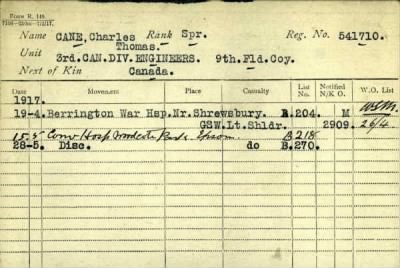 FORM R. 149.
Name CANE, Charles Rank Spr. Reg. No. 541710.
Thomas.
Unit 3rd.CAN.DIV.ENGINEERS. 9th.Fld.Coy.
Next of Kin Canada.
Date Movement Place Casualty List No. Notified N/K O. W.O. List
1917.
19-4. Berrington War Hsp.Nr.Shrewsbury. B.204. M
GSW.Lt.Shldr. 2909. 26/4
15.5 Conv Hosp Woodcote Park Epsom B218
28-5. Disc. do B.270.